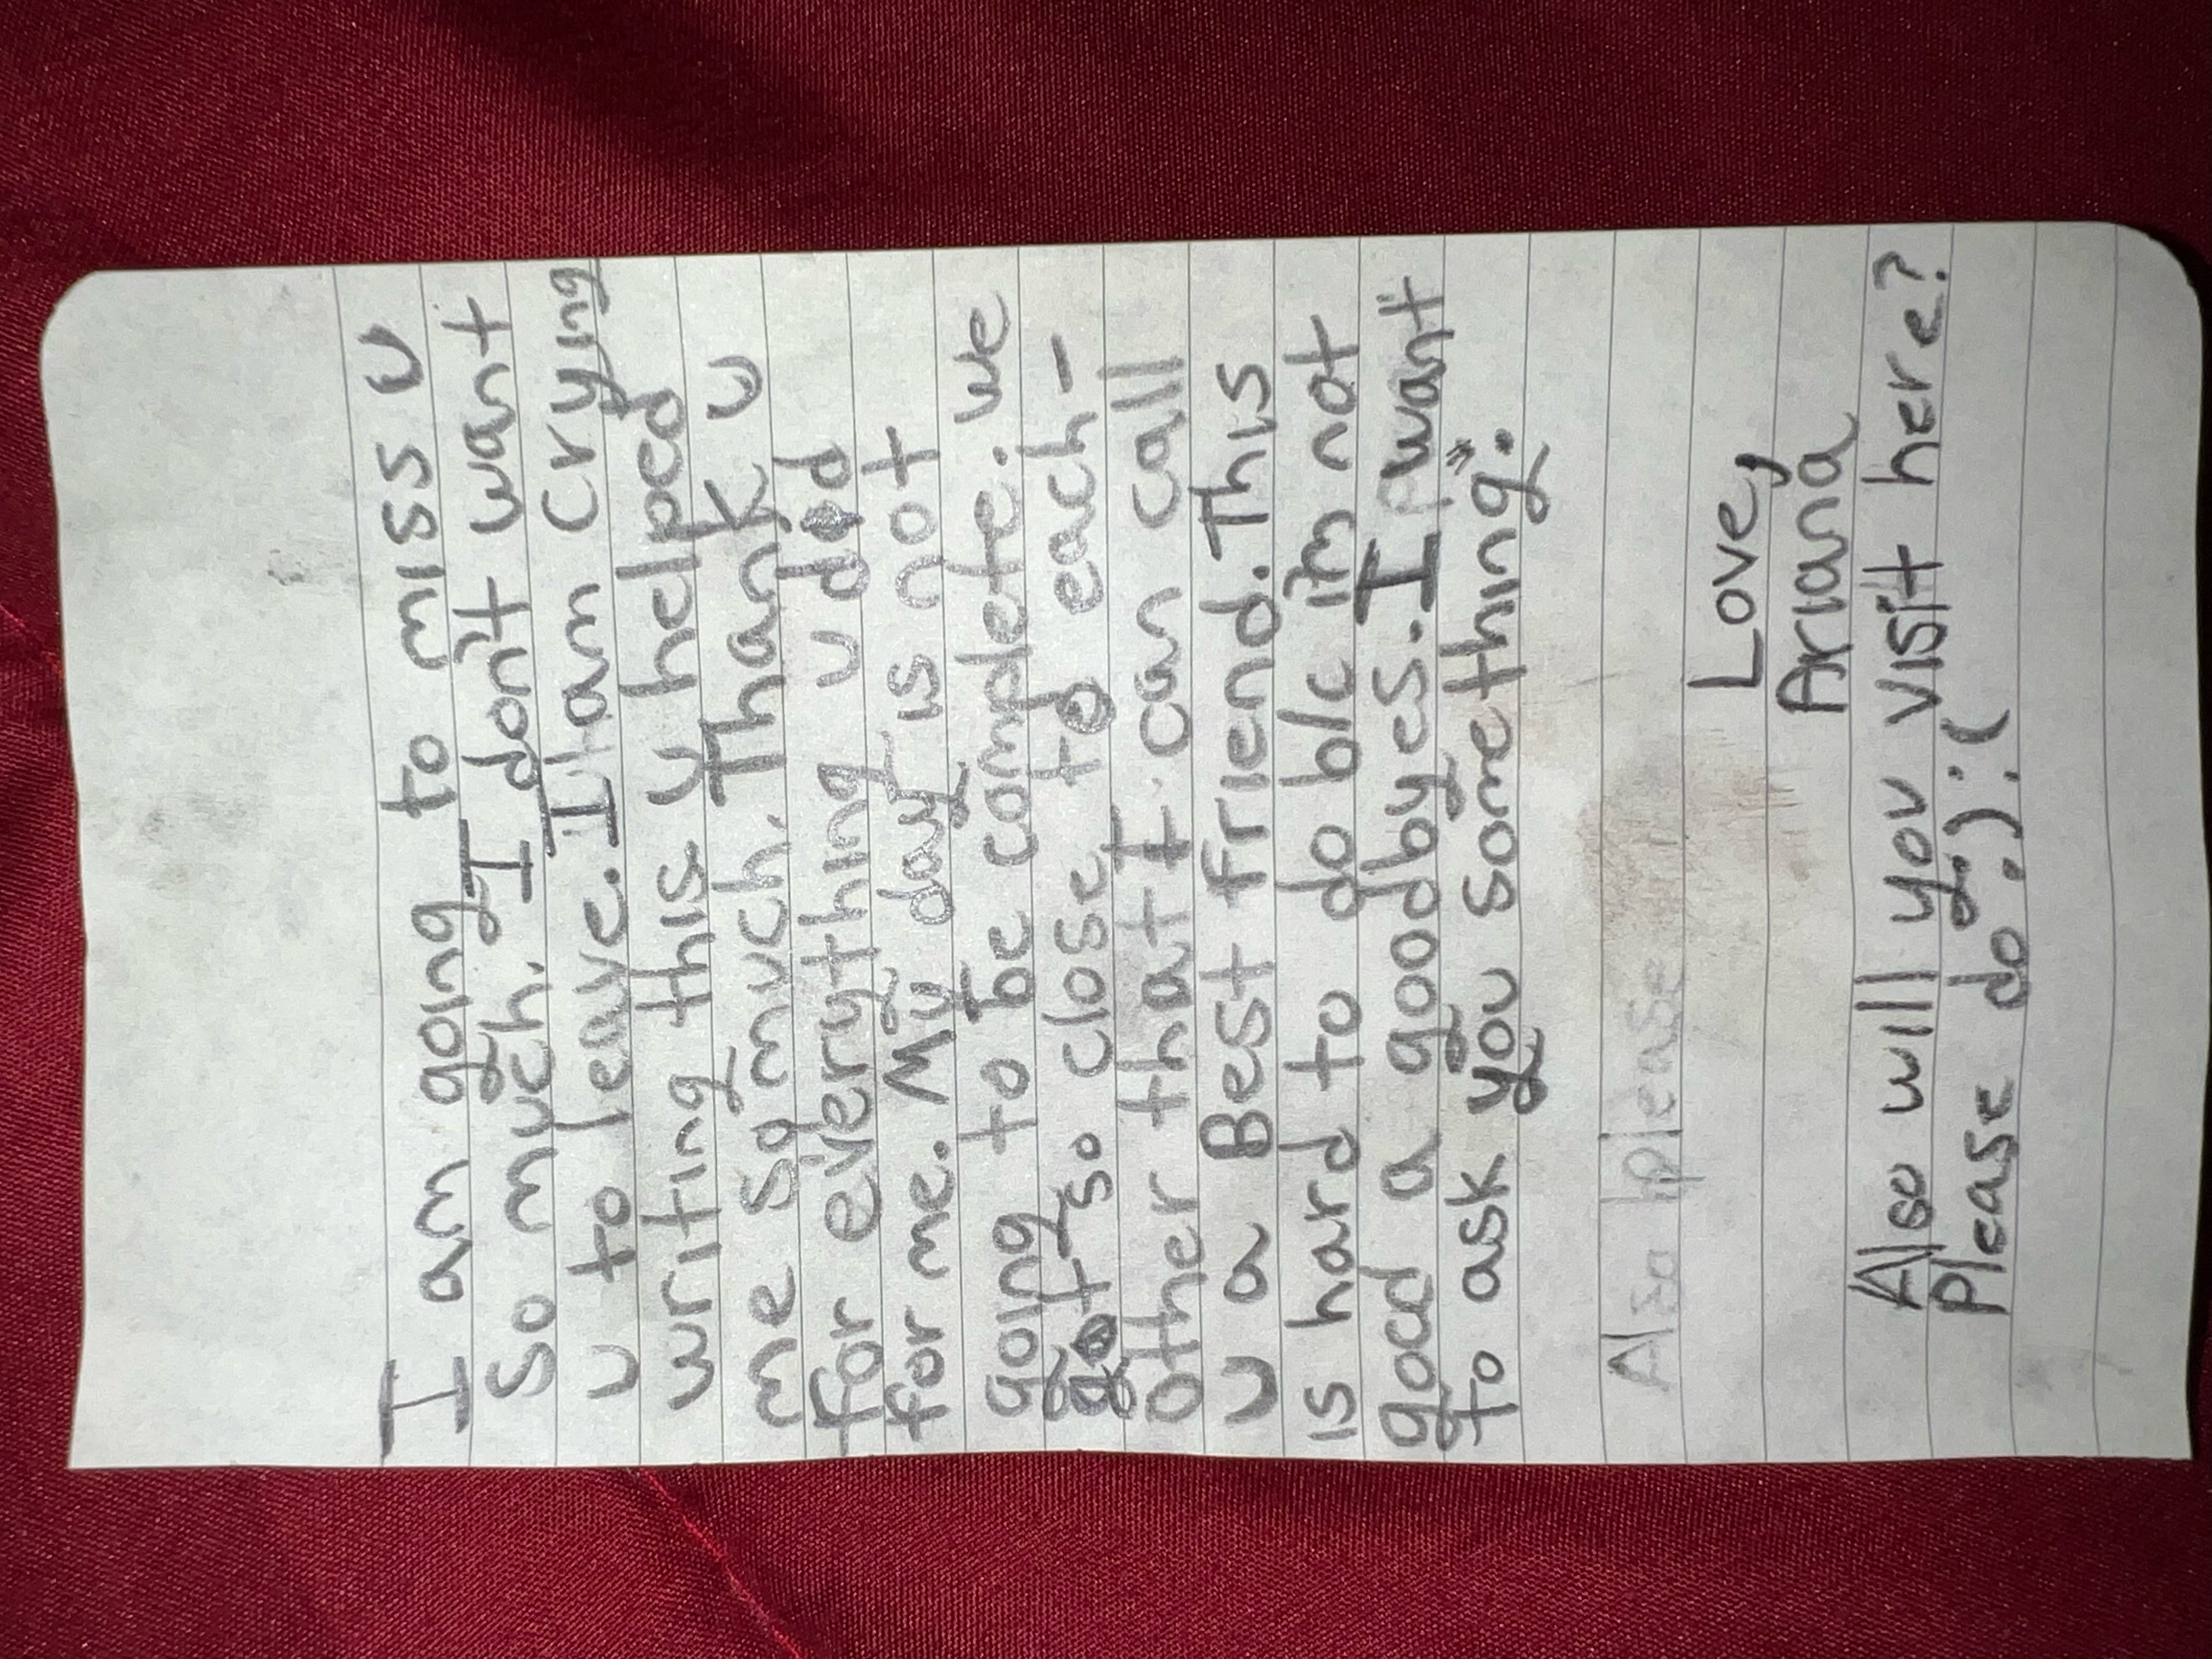 I am going to miss u
So much. I don't want
u to leave. I am crying
writing this u helped
me so much. Thank u
for everything u did
for me. My day is not
going to be complete. We
got so close to each-
other that I can call
u a Best friend. This
is hard to do b/c i'm not
good a goodbyes. I want
to ask you something.
Also please
Love,
Ariana
Also will you visit here?
Please do :) :(